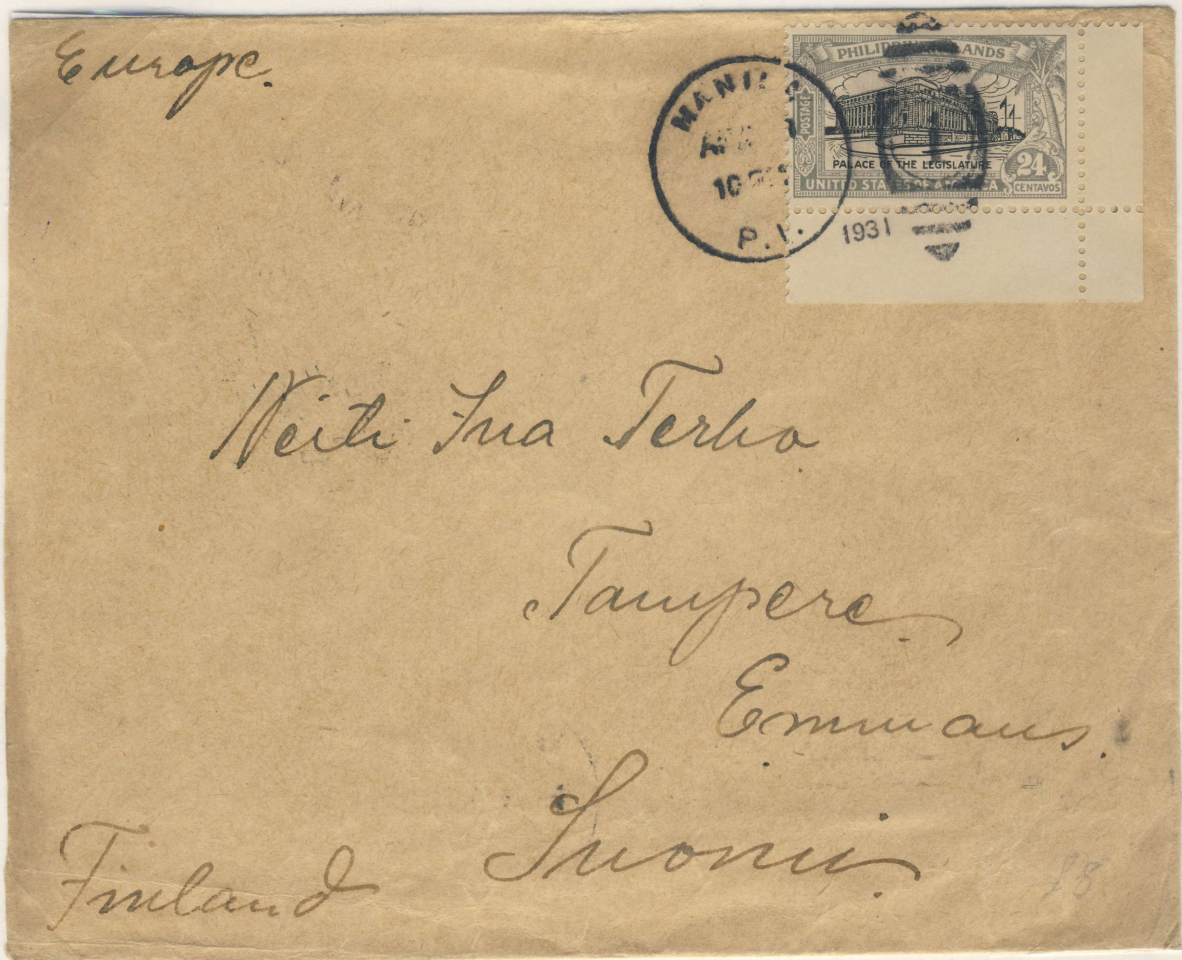 Europe.
MANILA
10
P.I.
1931
1
PHILIPPINE ISLANDS
POSTAGE
PALACE OF THE LEGISLATURE
24
CENTAVOS
UNITED STATES OF AMERICA
Neiti Ina Terho
Tampere.
Emmaus.
Suomi.
Finland